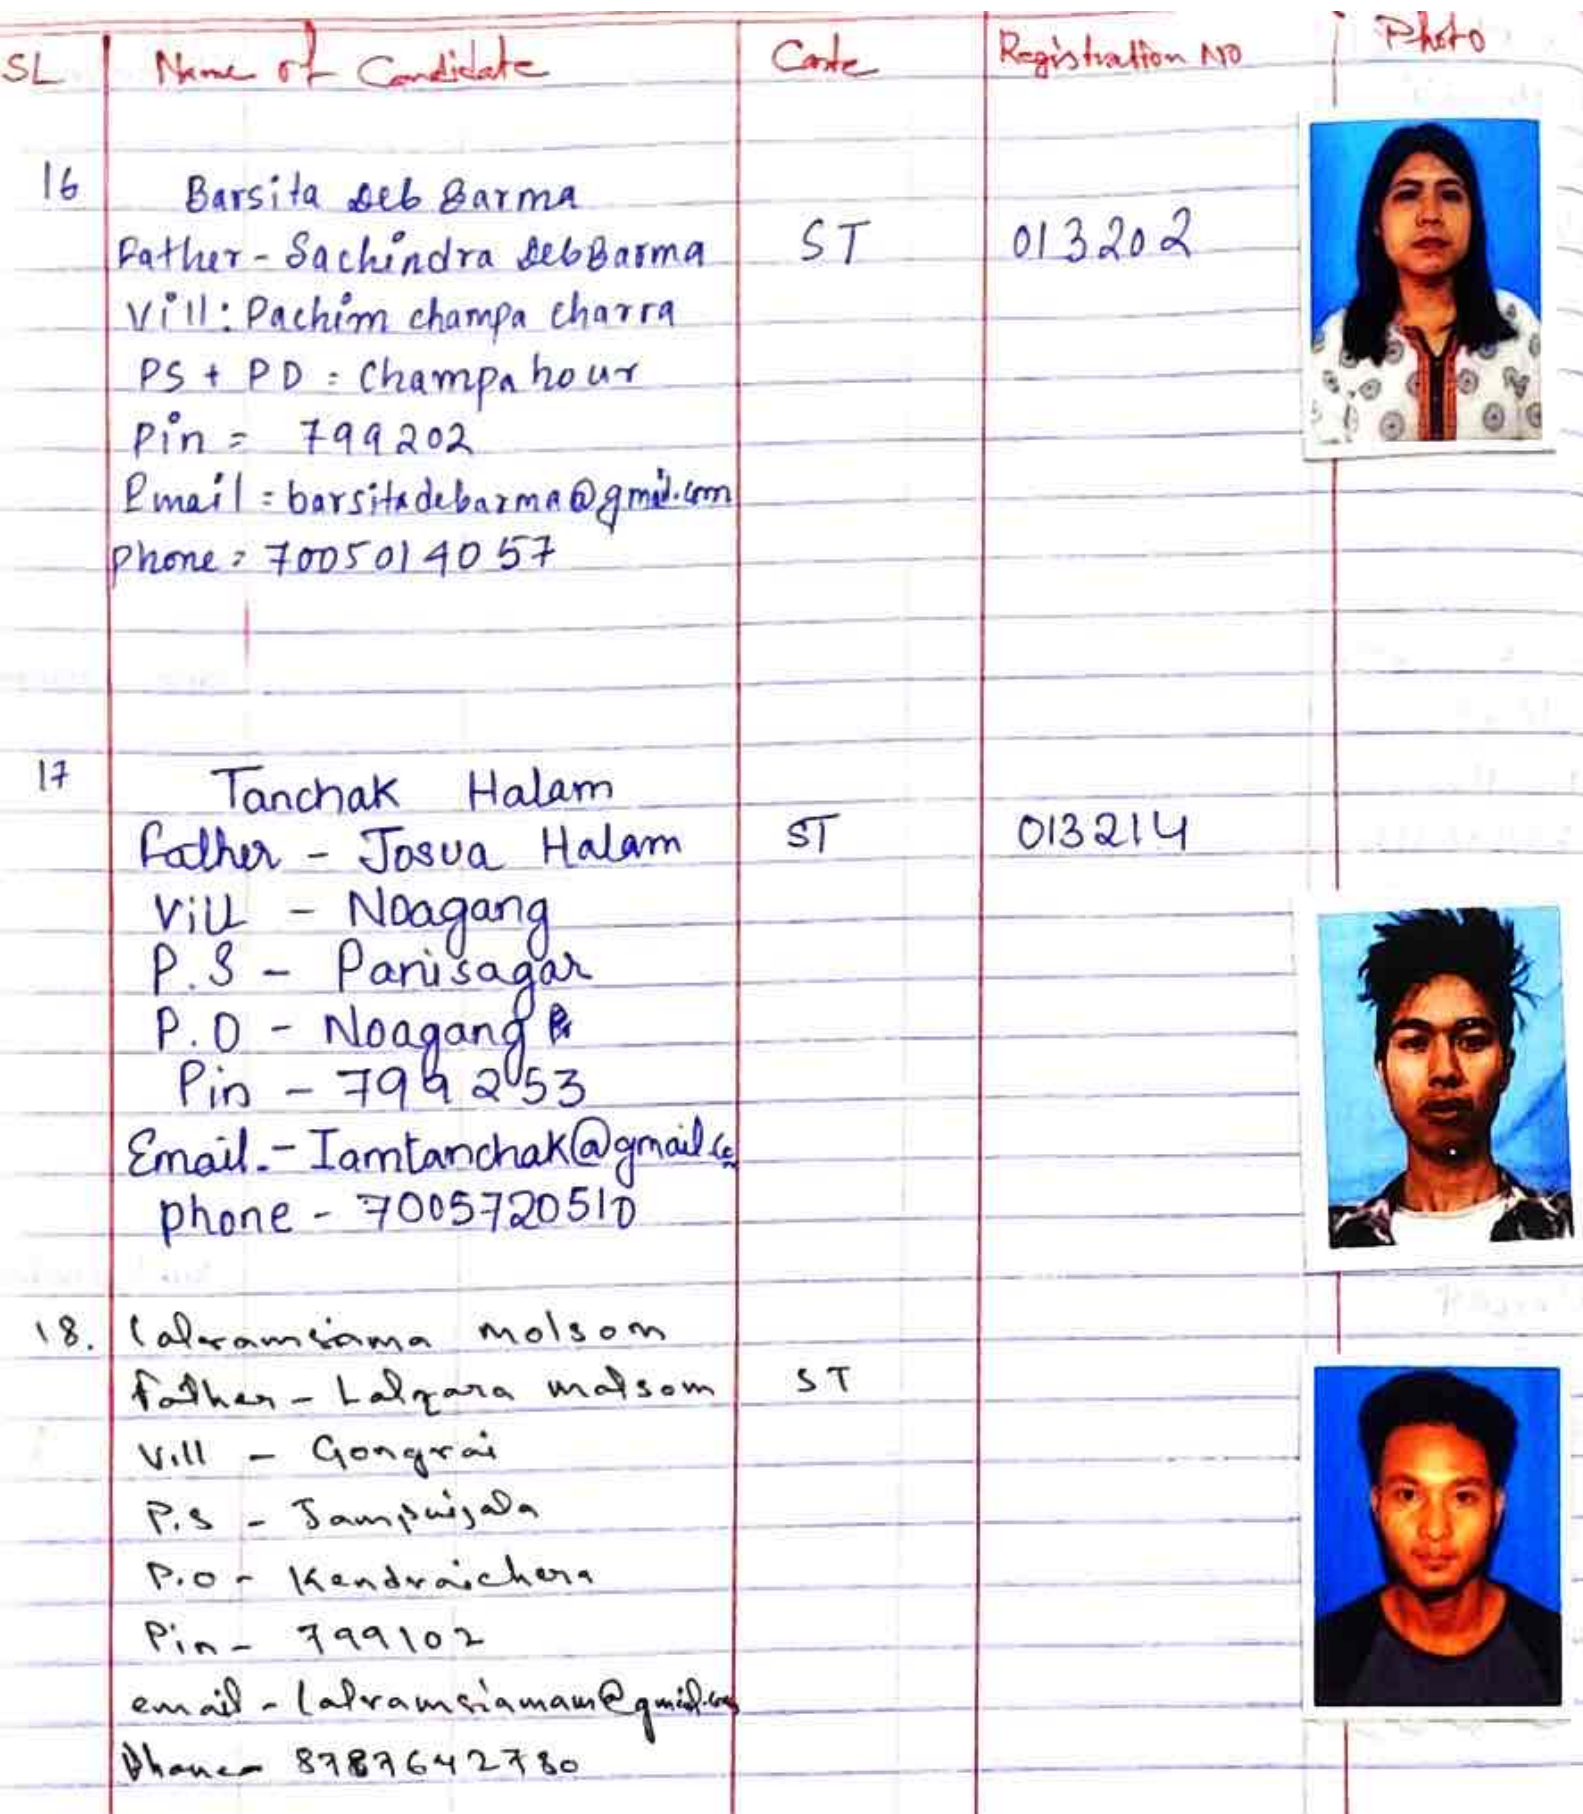 SL Name of Candidate Caste Registration NO Photo
16 Barsita Deb Barma
Father - Sachindra DebBarma ST 013202
Vill: Pachim champa charra
PS + PO = Champahour
Pin = 799202
Email = barsitadebarma@gmail.com
Phone = 7005014057
17 Tanchak Halam
Father - Josua Halam ST 013214
Vill - Noagang
P.S - Panisagar
P.O - Noagang
Pin - 799253
Email.- Iamtanchak@gmail.co
phone - 7005720510
18. lalramsiama molsom
Father - Lalzara molsom ST
Vill - Gongrai
P.S - Jampuijala
P.O - Kendraichera
Pin - 799102
email - lalramsiamam@gmail.com
Phone - 8787642780